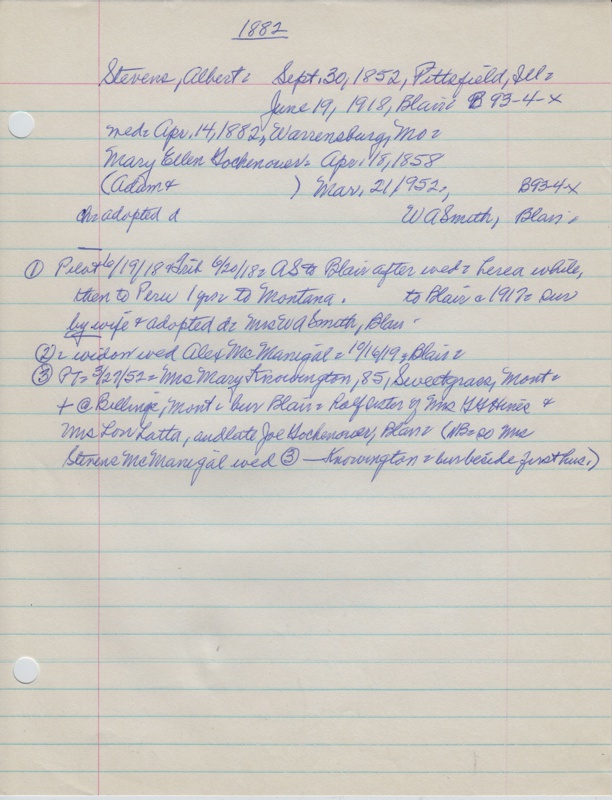 1882
Stevens, Albert = Sept. 30, 1852, Pittsfield, Ill =
June 19, 1918, Blair = B 93-4-x
wed = Apr. 14, 1882, Warrensburg, Mo =
Mary Ellen Gochenour = Apr. 18, 1858
(Adam & ) Mar. 21, 1952, B93-4-x
ch = adopted d W A Smith, Blair =
① Pilot 6/19/18 & Trib 6/20/18 = AS to Blair after wed = here a while,
then to Peru 1 yr = to Montana. to Blair c 1917 = sur
by wife & adopted d = Mrs W A Smith, Blair.
② = widow wed Alex McManigal = 10/16/19 = Blair =
③ PT = 3/27/52 = Mrs Mary Knowington, 85, Sweetgrass, Mont =
+ @ Billings, Mont = bur Blair = half sister of Mrs Hines &
Mrs Lon Latta, and late Joe Gochenour, Blair = (NB = so Mrs
Stevens McManigal wed ③ — Knowington = bur beside first hus.)